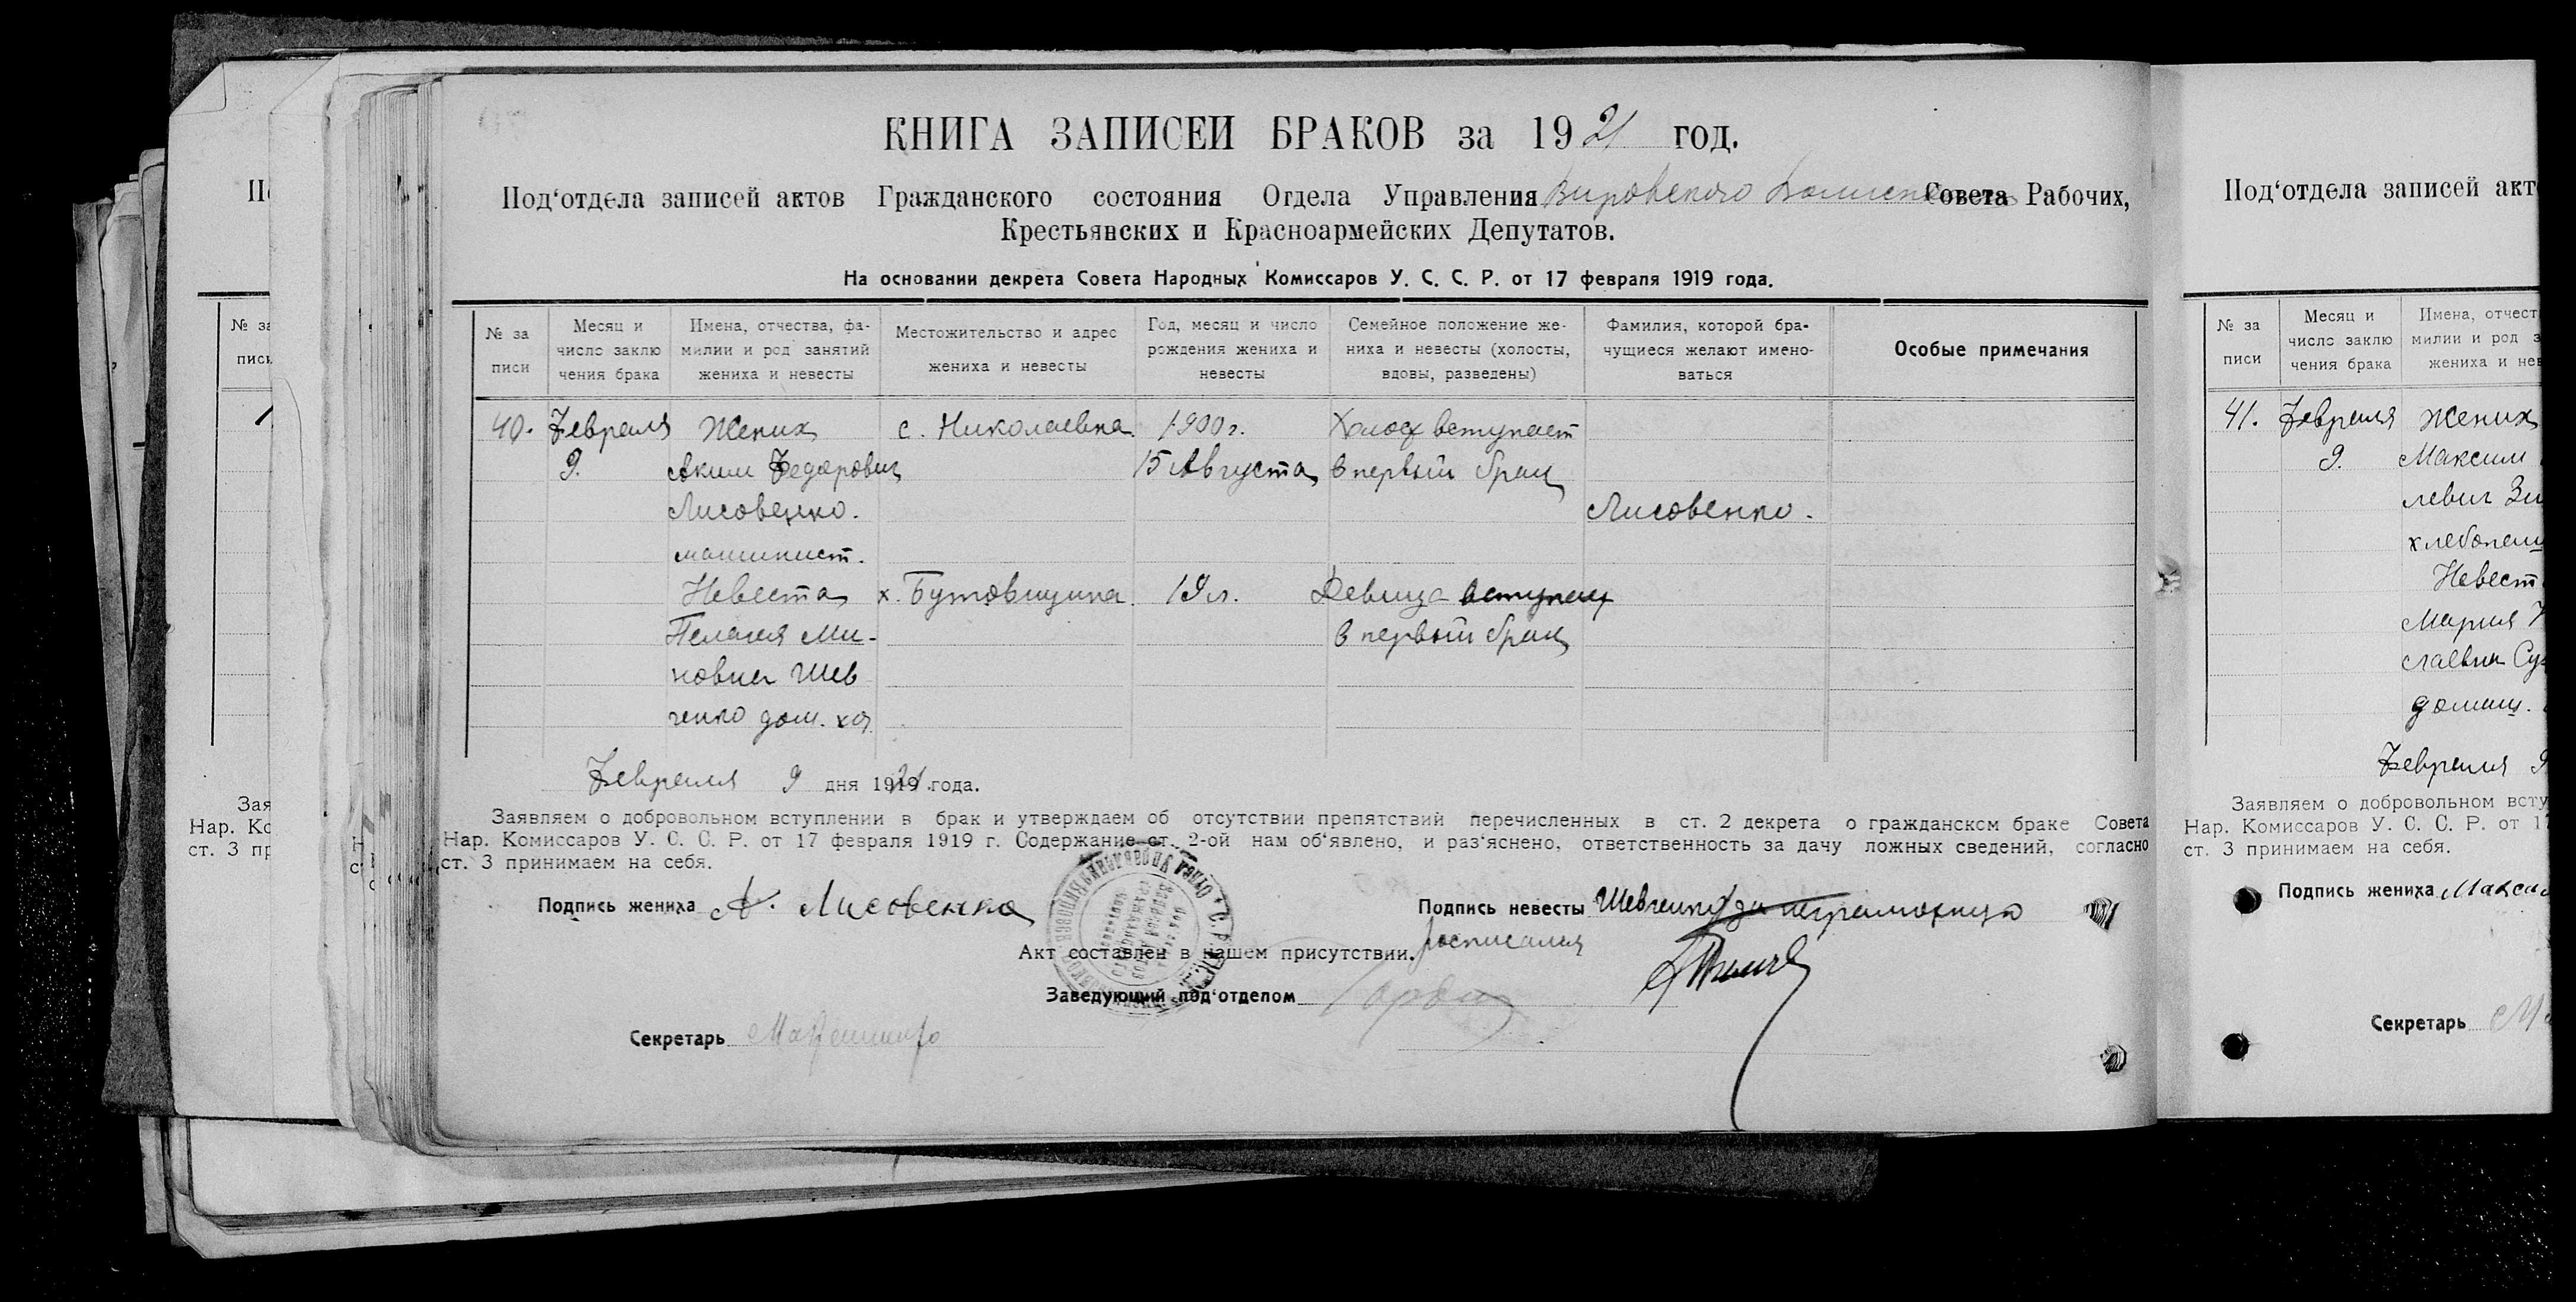 КНИГА ЗАПИСЕЙ БРАКОВ за 1921 год.
Под‘отдела записей актов Гражданского состояния Отдела Управления Вировского Волиспкома Совета Рабочих,
Крестьянских и Красноармейских Депутатов.
На основании декрета Совета Народных Комиссаров У. С. С. Р. от 17 февраля 1919 года.
№ за писи
Месяц и число заклю чения брака
Имена, отчества, фа- милии и род занятий жениха и невесты
Местожительство и адрес жениха и невесты
Год, месяц и число рождения жениха и невесты
Семейное положение же- ниха и невесты (холосты, вдовы, разведены)
Фамилия, которой бра- чущиеся желают имено- ваться
Особые примечания
40. Февраля Жених с. Николаевка 1900 г. Холост вступает
9. Аким Федорович 15 Августа в первый брак
Лисовенко. Лисовенко.
машинист.
Невеста х. Бутовщина 19 л. Девица вступает
Пелагея Ми- в первый брак
новна Шев
ченко дом. хоз.
Февраля 9 дня 1921 года.
Заявляем о добровольном вступлении в брак и утверждаем об отсутствии препятствий перечисленных в ст. 2 декрета о гражданском браке Совета
Нар. Комиссаров У. С. С. Р. от 17 февраля 1919 г. Содержание ст. 2-ой нам об‘явлено, и раз‘яснено, ответственность за дачу ложных сведений, согласно
ст. 3 принимаем на себя.
Подпись жениха А. Лисовенко
Подпись невесты Шевченко за неграмотную
росписался
Акт составлен в нашем присутствии.
Заведующий под‘отделом
Секретарь
Под‘отдела записей акт
№ за писи
Месяц и число заклю чения брака
Имена, отчест милии и род з жениха и нев
41. Февраля Жених
9. Максим
левич
хлебопаш
Невест
Мария
славна
домаш.
Февраля 9
Заявляем о добровольном всту
Нар. Комиссаров У. С. С. Р. от 17
ст. 3 принимаем на себя.
Подпись жениха Макси
Секретарь
№ за
писи
Зая
Нар. Ко
ст. 3 пр